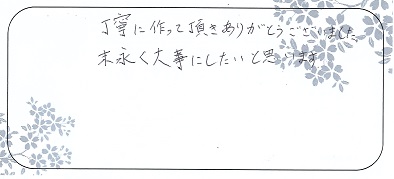 丁寧に作って頂きありがとうございました。
末永く大事にしたいと思います